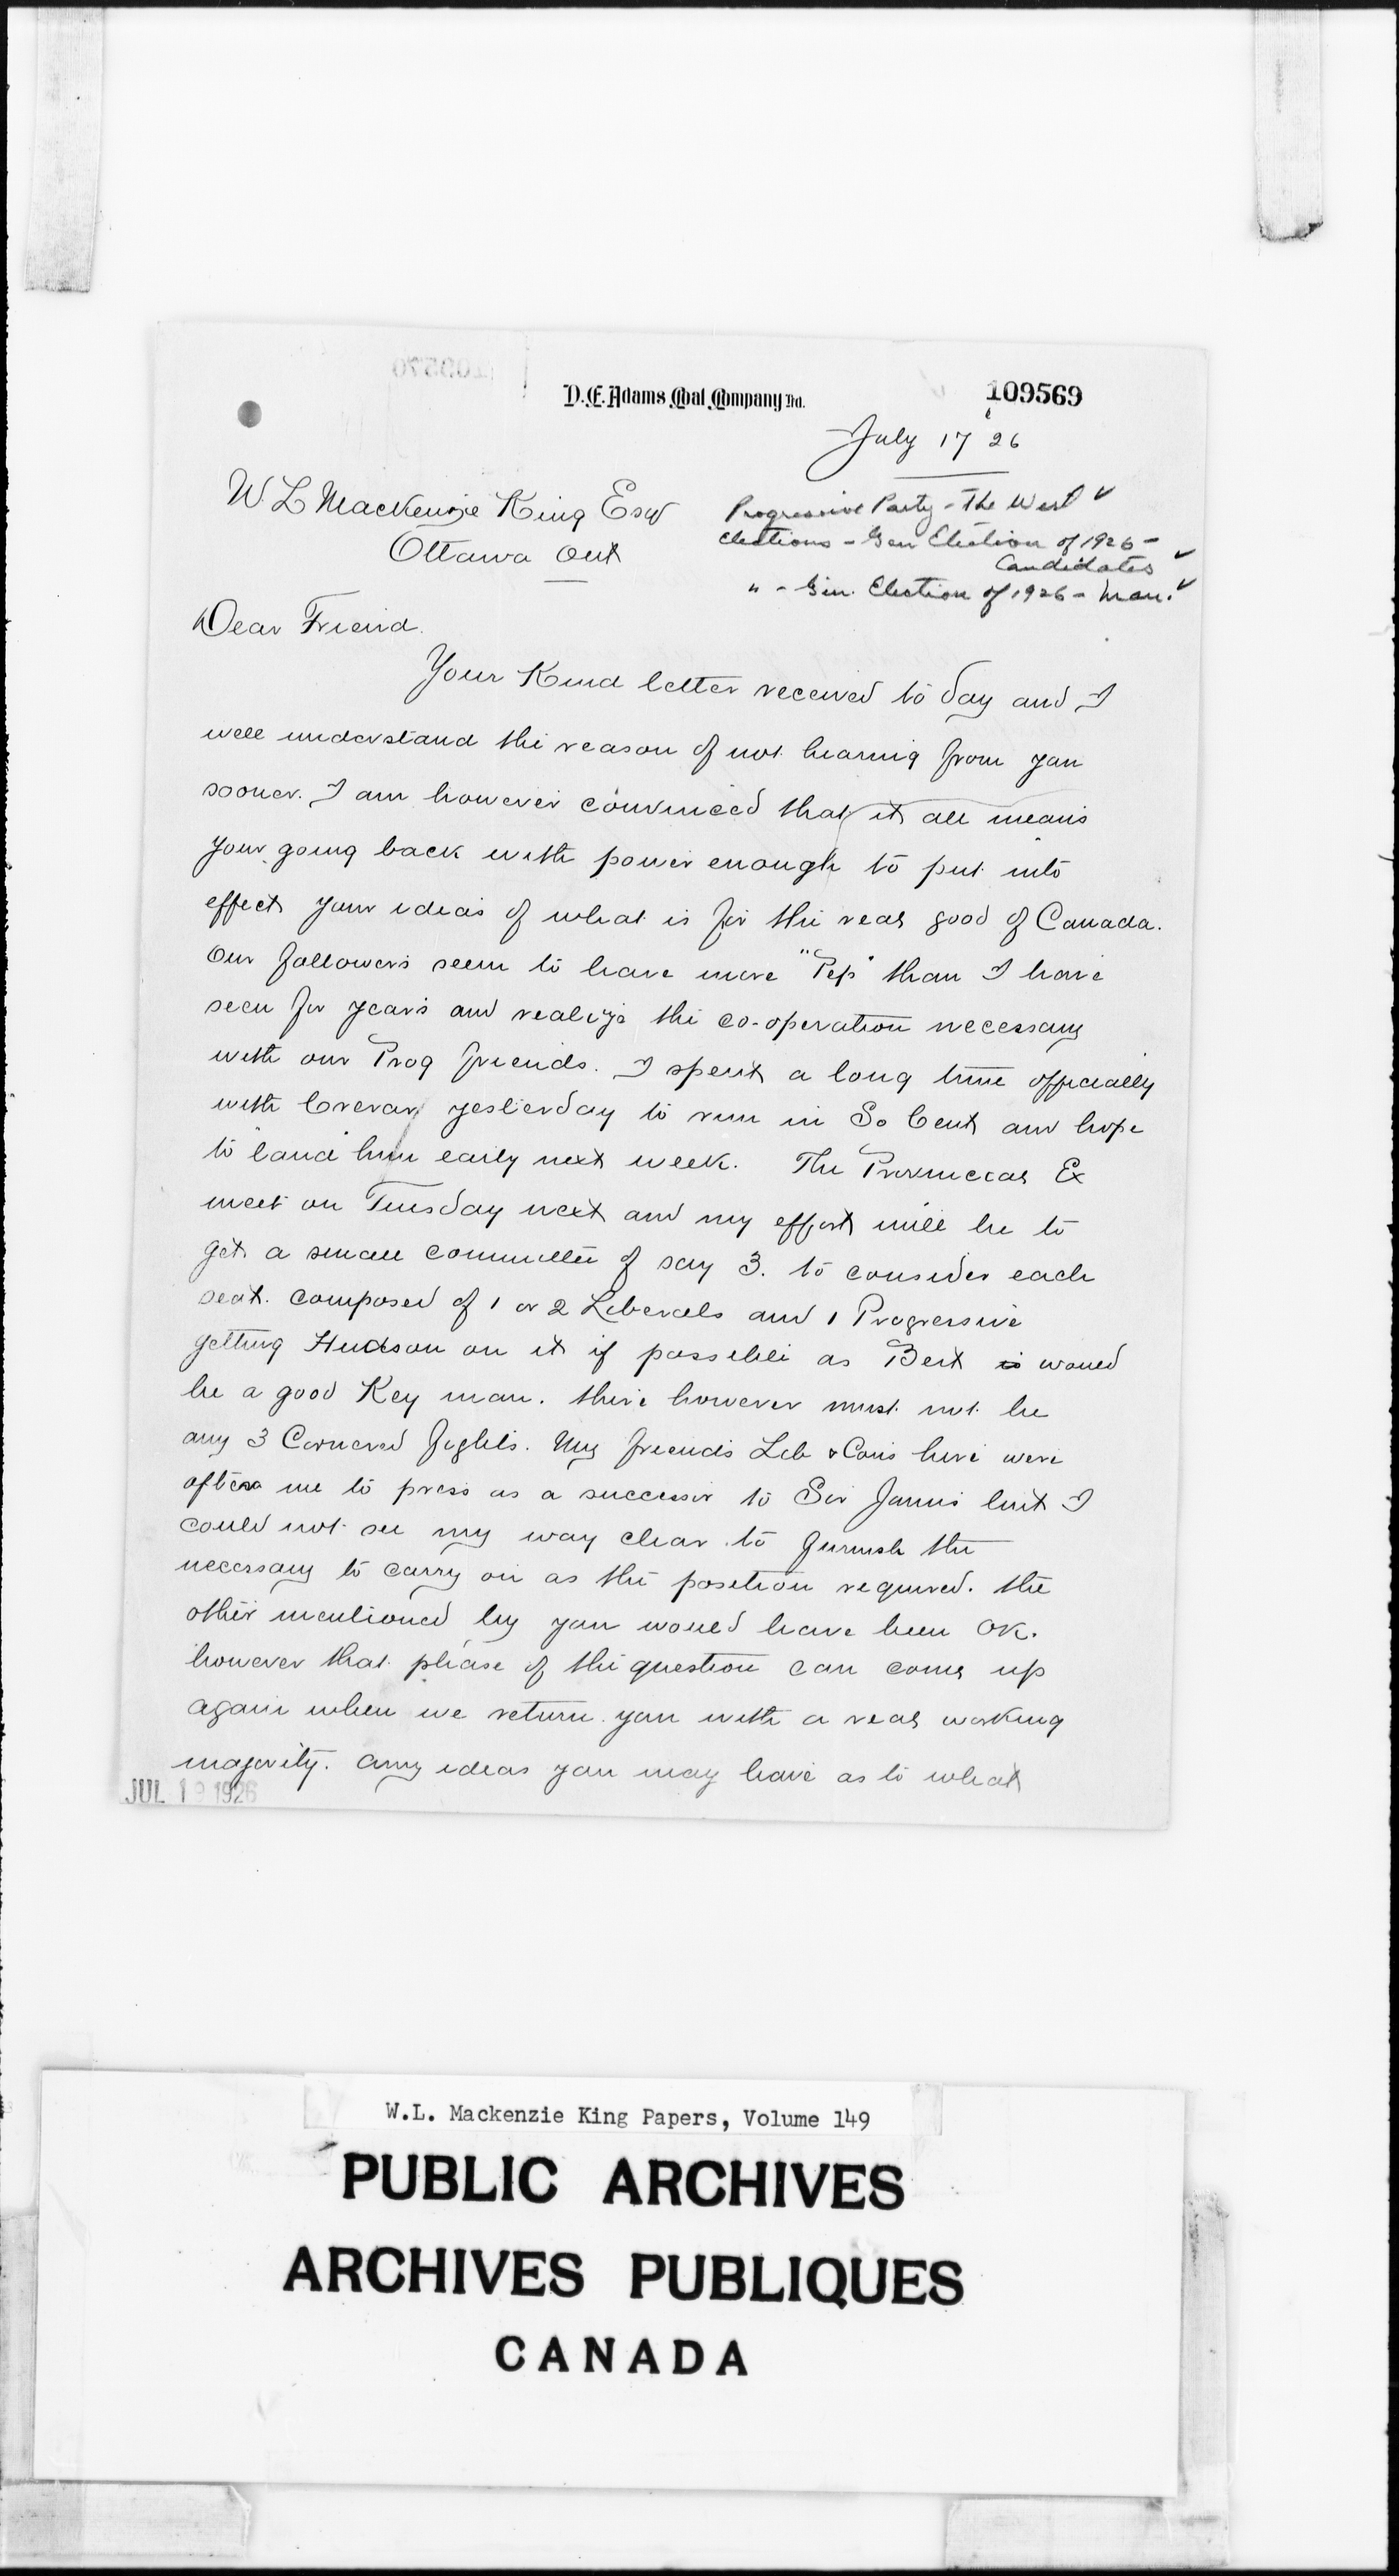 109570
D.E. Adams Coal Company Ltd.
109569
July 17 '26
W. L Mackenzie King Esq
Ottawa Ont
Progressive Party - The West ✓
Elections - Gen Election of 1926 -
Candidates ✓
" - Gen. Election of 1926 - Man. ✓
Dear Friend.
Your Kind letter received to day and I
well understand the reason of not hearing from you
sooner. I am however convinced that it all means
your going back with power enough to put into
effect your ideas of what is for the real good of Canada.
Our followers seem to have more "Pep" than I have
seen for years and realize the co-operation necessary
with our Prog friends. I spent a long time officially
with Crerar yesterday to run in So Cent and hope
to land him early next week. The Provincial Ex
meet on Tuesday next and my effort will be to
get a small committee of say 3. to consider each
seat. composed of 1 or 2 Liberals and 1 Progressive
getting Hudson on it if possible as Bert is would
be a good Key man. there however must not be
any 3 Cornered fights. My friends Lib & Cons here were
after me to press as a successor to Sir James but I
could not see my way clear to furnish the
necessary to carry on as the position required. the
other mentioned by you would have been OK.
however that phase of the question can come up
again when we return you with a real working
majority. any ideas you may have as to what
JUL 19 1926
W.L. Mackenzie King Papers, Volume 149
PUBLIC ARCHIVES
ARCHIVES PUBLIQUES
CANADA